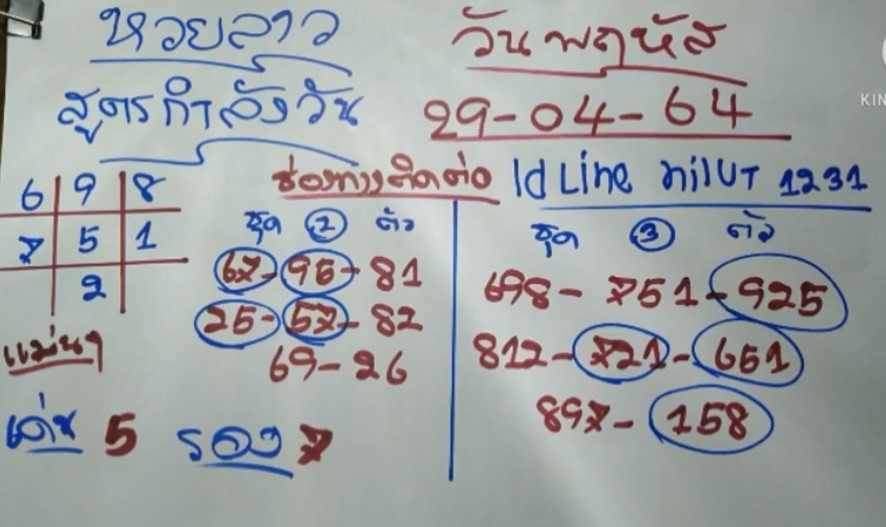 หวยลาว
วันพฤหัส
สูตรกำลังวัน
29-04-64
KIN
ช่องทางติดต่อ Id Line
1231
6 9 8
7 5 1
2
ชุด 2 ตัว
67-95-81
25-57-82
69-26
ชุด 3 ตัว
698-751-925
812-721-651
897-158
แม่นๆ
เด่น 5 รอง 7